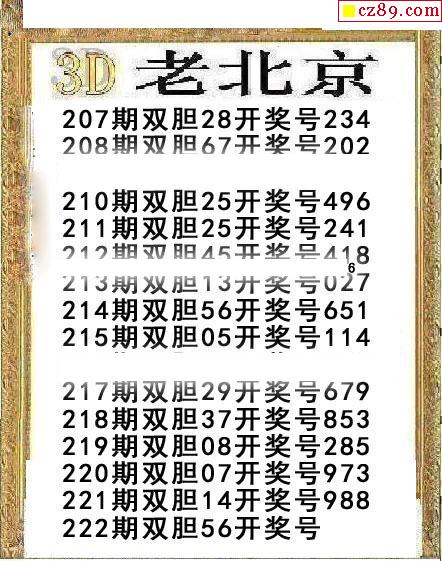 cz89.com
3D 老北京
207期双胆28开奖号234
208期双胆67开奖号202
210期双胆25开奖号496
211期双胆25开奖号241
212期双胆45开奖号418
6
213期双胆13开奖号027
214期双胆56开奖号651
215期双胆05开奖号114
217期双胆29开奖号679
218期双胆37开奖号853
219期双胆08开奖号285
220期双胆07开奖号973
221期双胆14开奖号988
222期双胆56开奖号